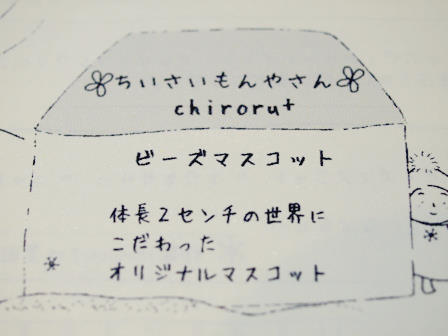 ちいさいもんやさん
chiroru+
ビーズマスコット
体長2センチの世界に
こだわった
オリジナルマスコット